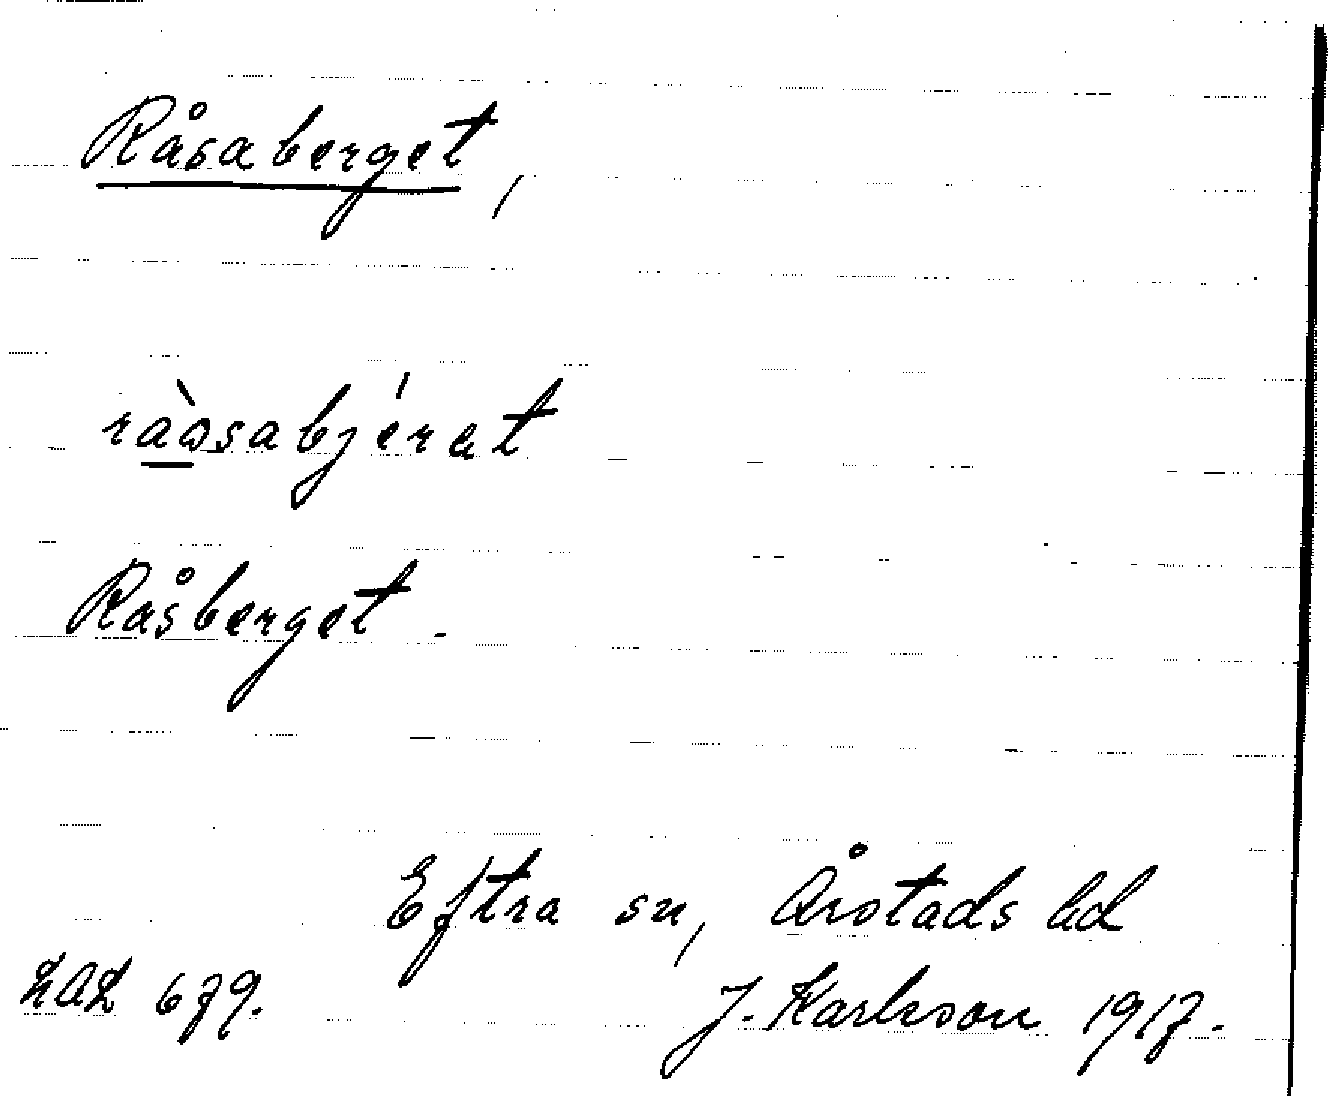 Råsaberget,
ràssabjérat
Råsberget.
Eftra sn, Årstads hd
LAL 679.
J. Karlsson 1917.